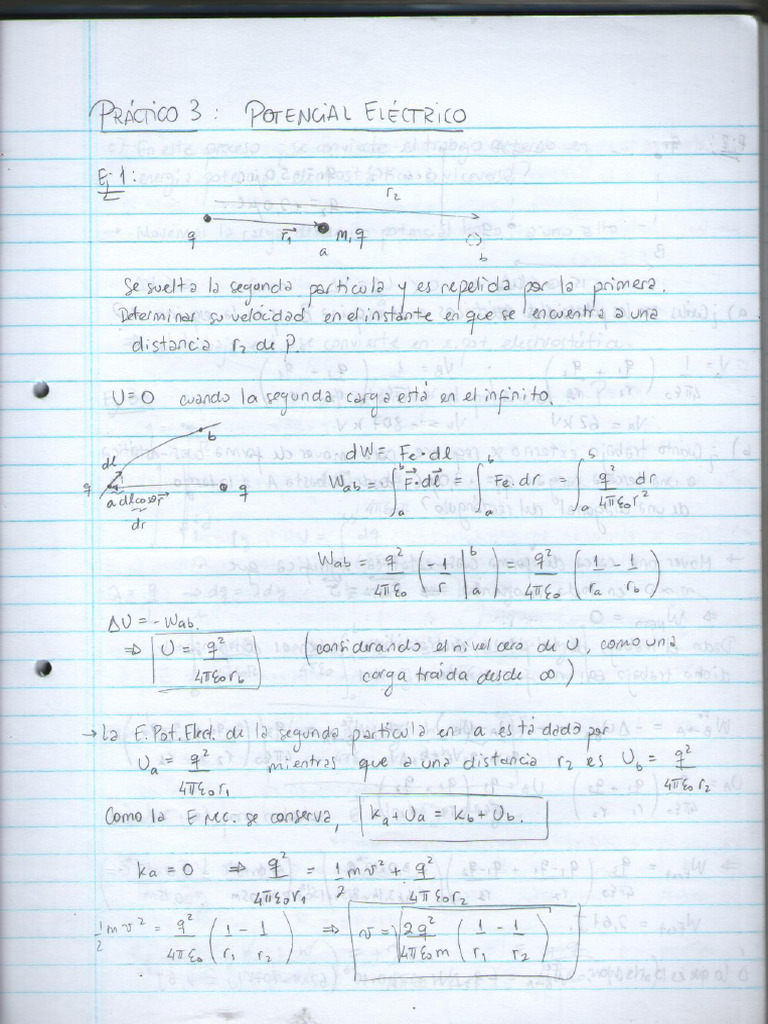 PRÁCTICO 3: POTENCIAL ELÉCTRICO
Ej 1:
r₂
q r⃗₁ m,q
a b
Se suelta la segunda partícula y es repelida por la primera.
Determinar su velocidad en el instante en que se encuentra a una
distancia r₂ de P.
U=0 cuando la segunda carga está en el infinito.
b
dl
q a dl cosθ r⃗ q
dr
dW = Fe·dl
Wab = ∫ₐᵇ F⃗·dl⃗ = ∫ₐᵇ Fe·dr = ∫ₐᵇ q²/4πε₀r² dr
Wab = q²/4πε₀ (-1/r |ₐᵇ) = q²/4πε₀ (1/ra - 1/rb)
ΔU = -Wab.
⇒ U = q²/4πε₀rb (considerando el nivel cero de U, como una
carga traída desde ∞)
→ La E. Pot. Elect. de la segunda partícula en a está dada por
Ua = q²/4πε₀r₁ mientras que a una distancia r₂ es Ub = q²/4πε₀r₂
Como la E Mec. se conserva, Ka + Ua = Kb + Ub.
Ka = 0 ⇒ q²/4πε₀r₁ = 1/2 mv² + q²/4πε₀r₂
1/2 mv² = q²/4πε₀ (1/r₁ - 1/r₂) ⇒ v = √(2q²/4πε₀m (1/r₁ - 1/r₂))